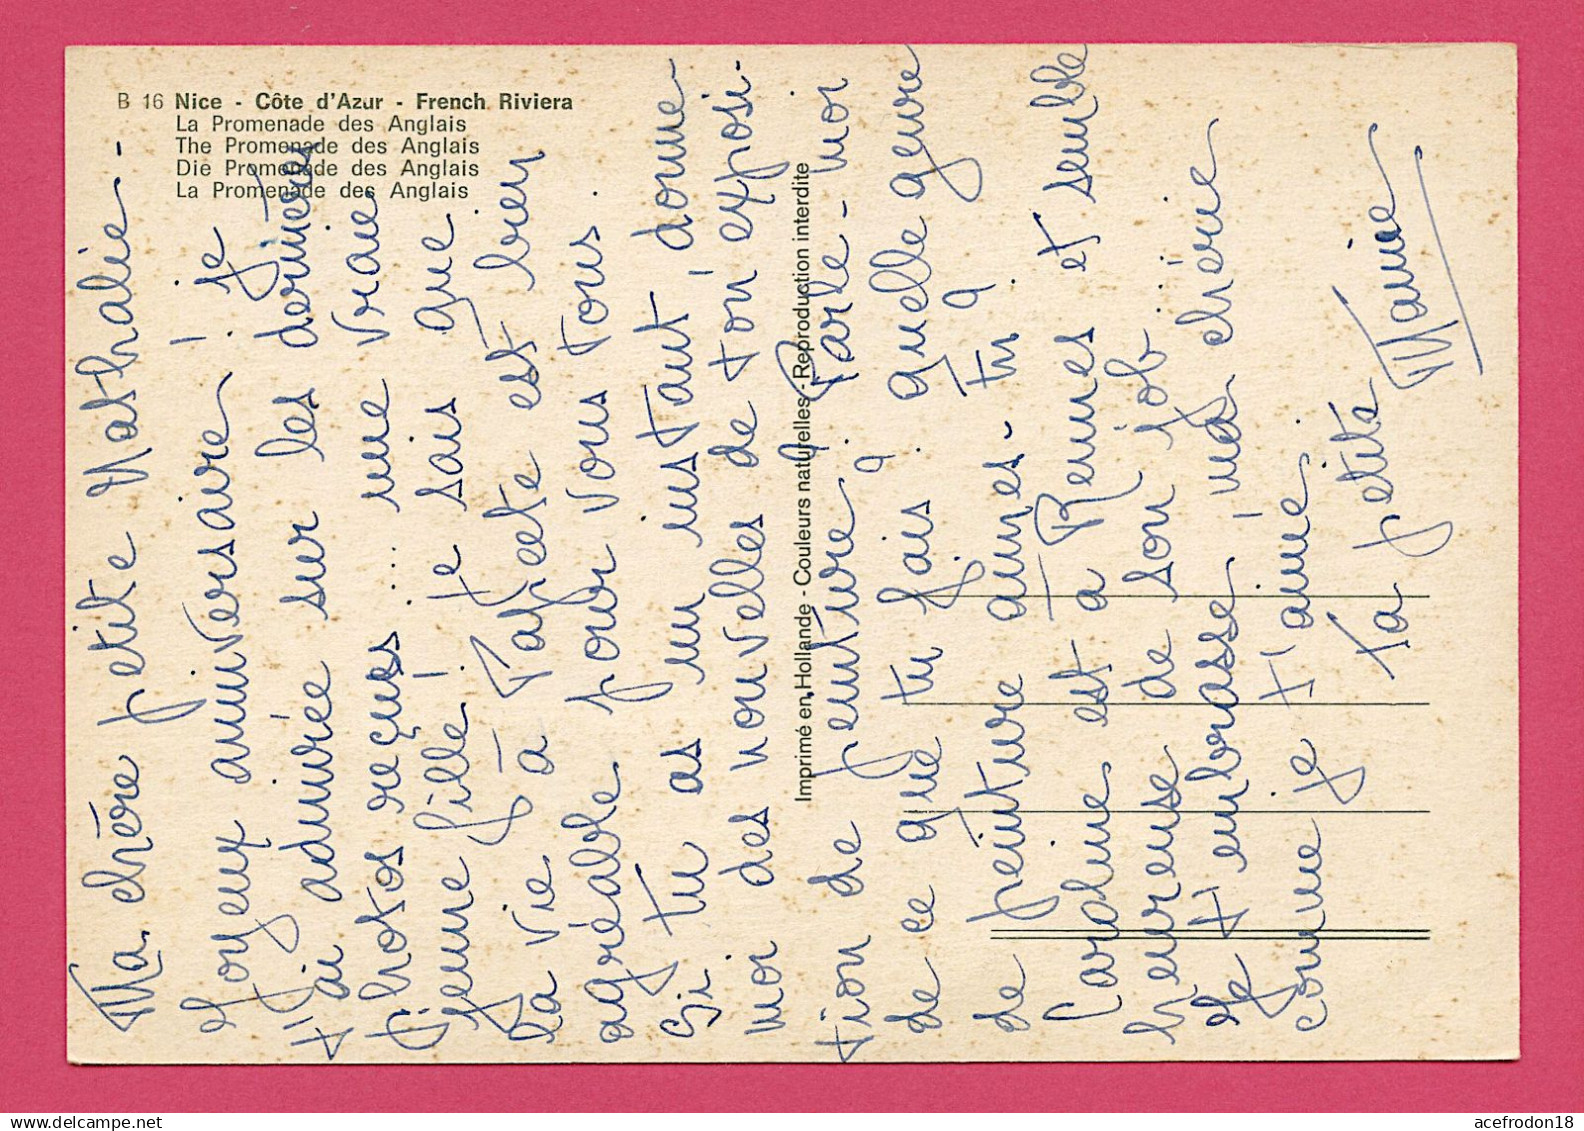 B 16 Nice - Côte d'Azur - French Riviera
La Promenade des Anglais
The Promenade des Anglais
Die Promenade des Anglais
La Promenade des Anglais
Imprimé en Hollande - Couleurs naturelles - Reproduction interdite
Ma chère petite Nathalie -
Joyeux anniversaire ! Je
t'ai admirée sur les dernières
photos reçues .... une vraie
jeune fille ! Je sais que
la vie à Papeete est bien
agréable pour vous tous.
Si tu as un instant, donne-
moi des nouvelles de ton exposi-
tion de peinture ? Parle-moi
de ce que tu fais ? quelle genre
de peinture aimes-tu ?
Caroline est à Rennes et semble
heureuse de son job ...
Je t'embrasse, ma chérie
comme je t'aime.
Ta petite
Mamie
acefrodon18